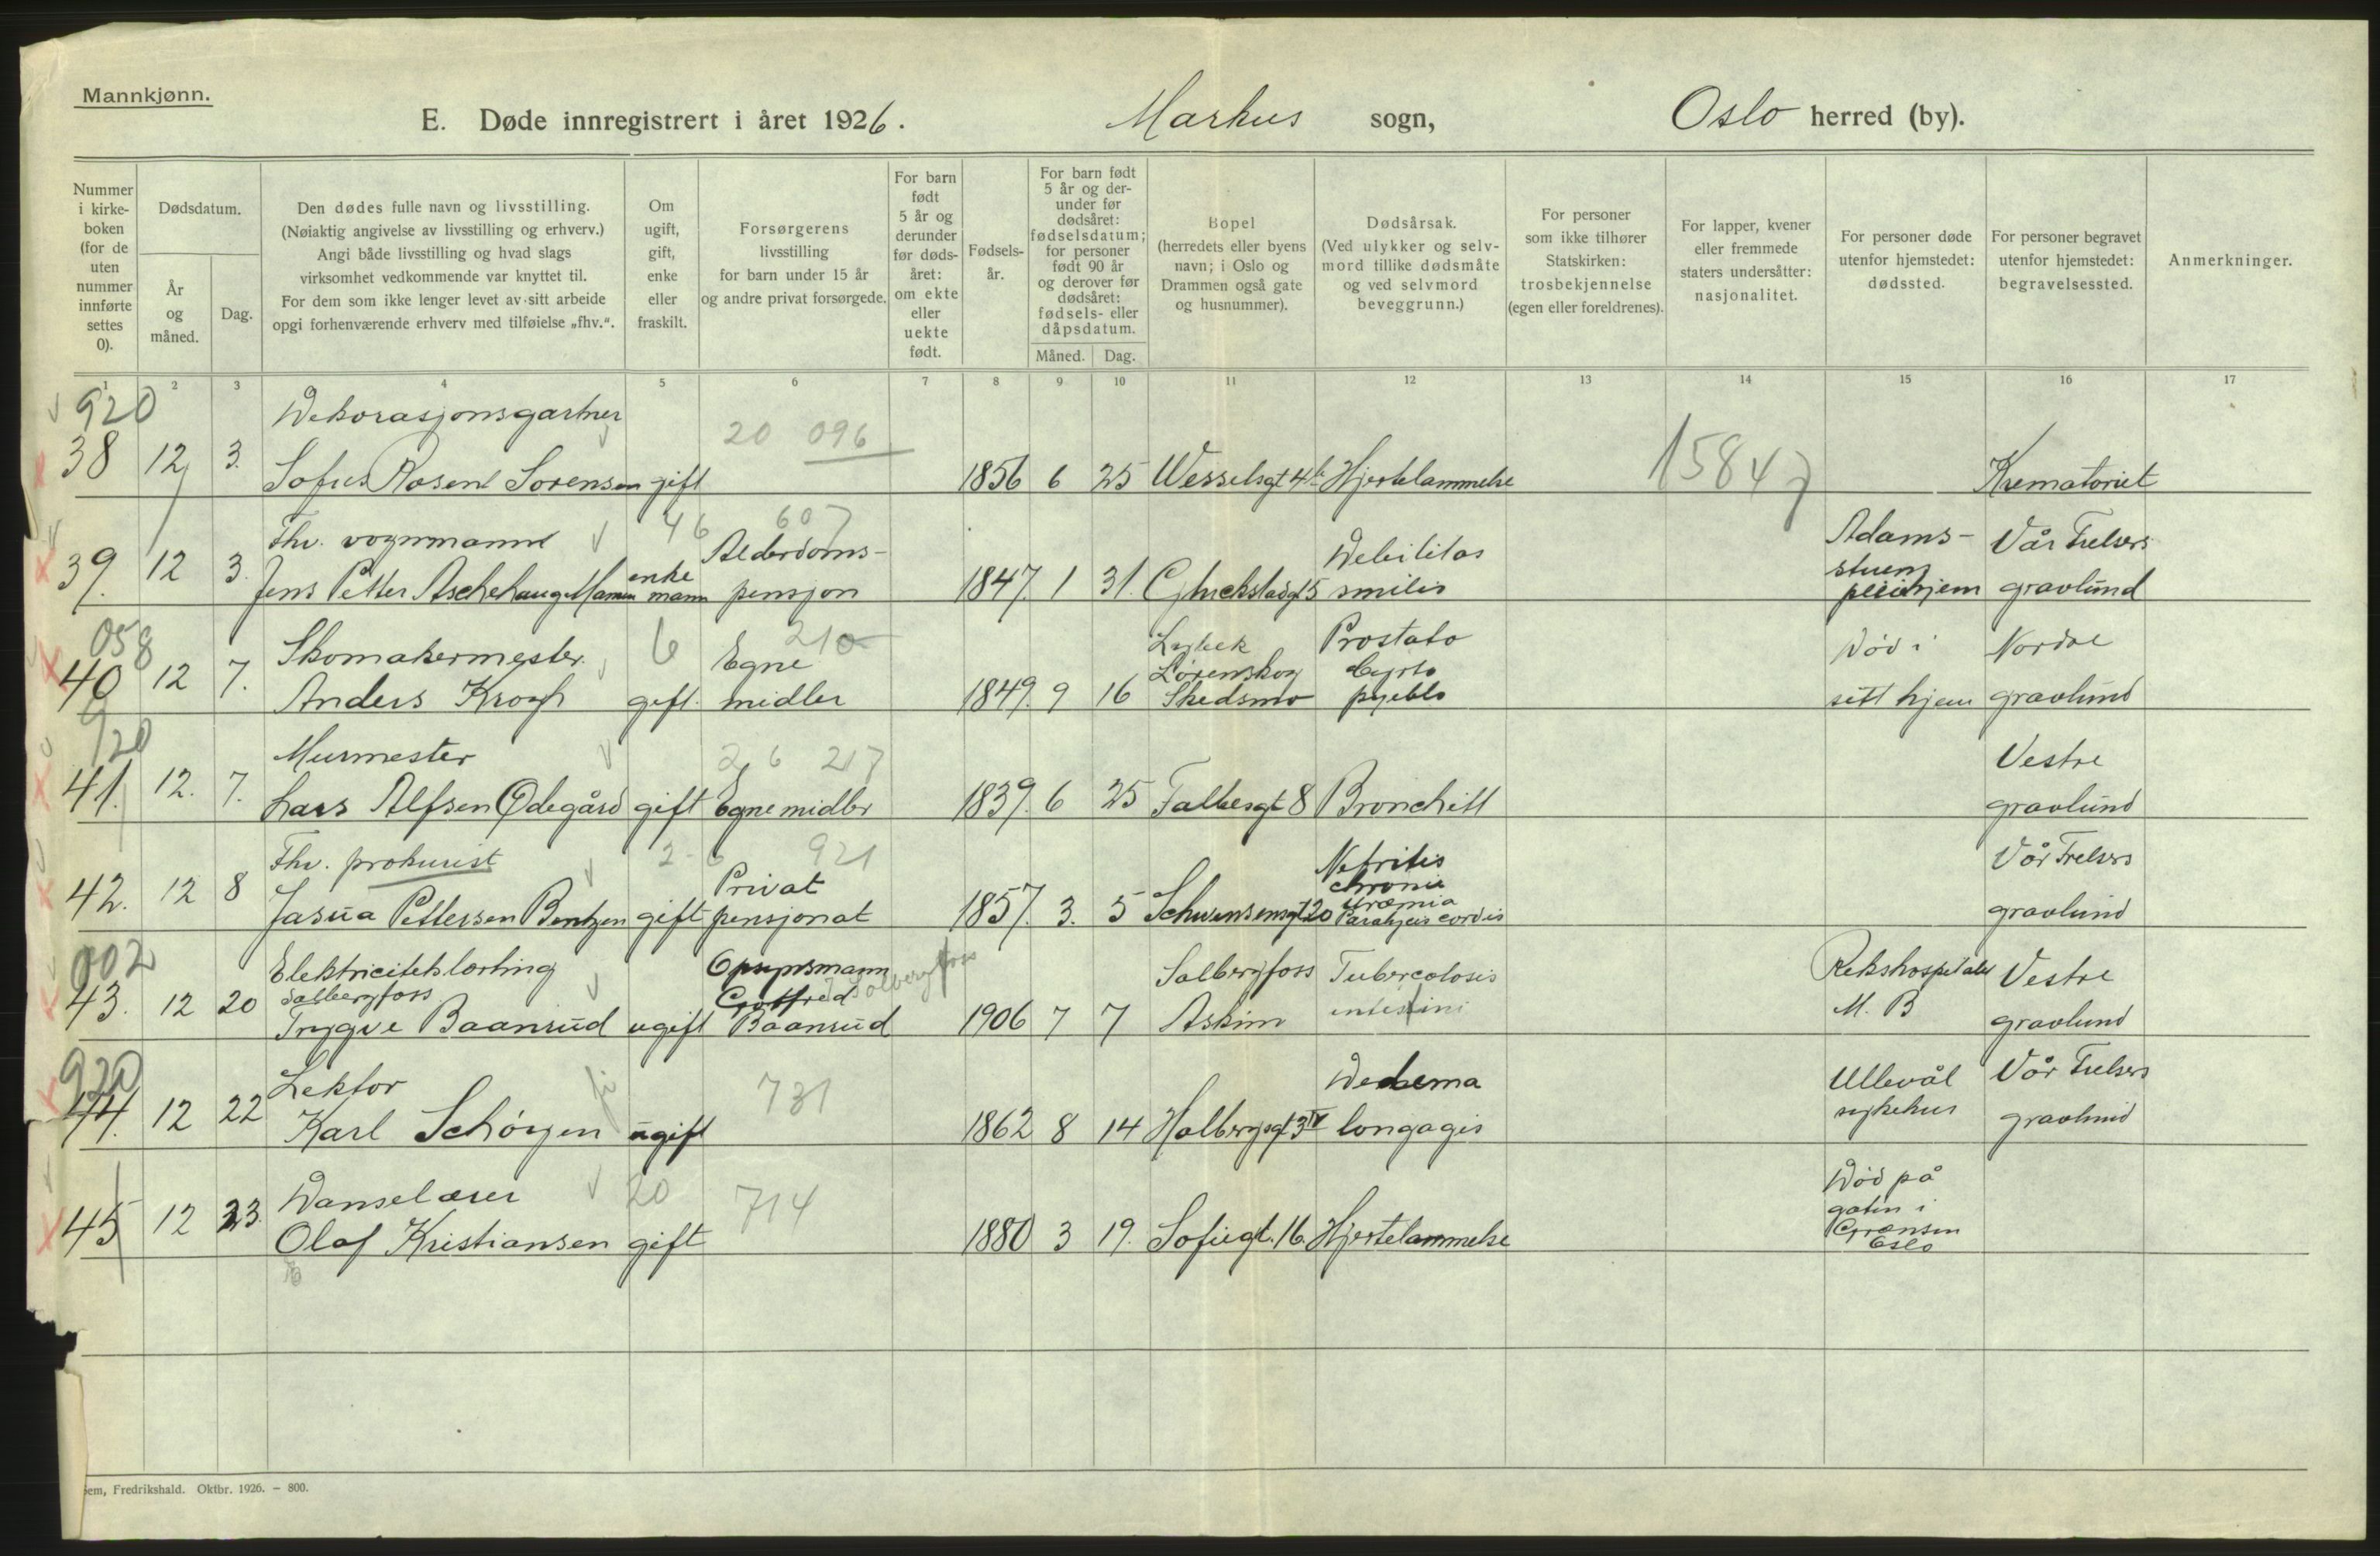 Mannkjønn.
E. Døde innregistrert i året 1926. Markus sogn, Oslo herred (by).
Nummer i kirke-boken (for de uten nummer innførte settes 0).
Dødsdatum.
År og måned.
Dag.
Den dødes fulle navn og livsstilling.
(Nøiaktig angivelse av livsstilling og erhverv.)
Angi både livsstilling og hvad slags
virksomhet vedkommende var knyttet til.
For dem som ikke lenger levet av sitt arbeide
opgi forhenværende erhverv med tilføielse „fhv.“.
Om ugift, gift, enke eller fraskilt.
Forsørgerens livsstilling for barn under 15 år og andre privat forsørgede.
For barn født 5 år og derunder før døds-året: om ekte eller uekte født.
Fødsels-år.
For barn født 5 år og der-under før dødsåret: fødselsdatum; for personer født 90 år og derover før dødsåret: fødsels- eller dåpsdatum.
Måned. Dag.
Bopel (herredets eller byens navn; i Oslo og Drammen også gate og husnummer).
Dødsårsak. (Ved ulykker og selv-mord tillike dødsmåte og ved selvmord beveggrunn.)
For personer som ikke tilhører Statskirken: trosbekjennelse (egen eller foreldrenes).
For lapper, kvener eller fremmede staters undersåtter: nasjonalitet.
For personer døde utenfor hjemstedet: dødssted.
For personer begravet utenfor hjemstedet: begravelsessted.
Anmerkninger.
1 2 3 4 5 6 7 8 9 10 11 12 13 14 15 16 17
920 Dekorasjonsgartner 20 096
38 12 3. Sofus Rosenl Sorensen gift 1856 6 25 Wesselsgt 4b Hjertelammelse 15847 Krematoriet
Fhv. vognmann 46 607 Alderdoms- Debilitas Adams- Vår Frelsers
39. 12 3. Jens Petter Aschehaug enke mann pensjon 1847. 1 31. Gluckstadgt 5 smilis stuen pleiehjem gravlund
058 Skomakermester 6 210 Egne Lørenskog Prostata Død i Nordre
40 12 7. Anders Krogh gift. midler 1849. 9 16 Skedsmo sitt hjem gravlund
920 Murmester 26 217 Vestre
41. 12. 7. Lars Alfsen Ødegård gift Egne midler 1839. 6 25 Falbesgt 8 Bronchitt gravlund
Fhv. prokurist 921 Privat Nefritis chronic Vår Frelsers
42. 12 8 Jasua Pettersen Bentzen gift pensjonat 1857. 3. 5 Schwensensgt 20 uræmia Paralysis cordis gravlund
002 Elektricitetslærling Opsynsmann Solbergfoss Solbergfoss Tubercolosis Rikshospitalet Vestre
43. 12 20 Solbergfoss Trygve Baanrud ugift Gotfred Baanrud 1906 7 7 Askim intestini M. B gravlund
920 Lektor 731 Ullevål Vår Frelsers
44. 12 22 Karl Schöyen ugift 1862 8 14 Holbergsgt 3 IV longagis sykehus gravlund
Danselærer 20 714 Død på
45 12 23. Olaf Kristiansen gift 1880 3 19. Sofiegt. 16. Hjertelammelse gaten i Grænsen Oslo
em, Fredrikshald. Oktbr. 1926. – 800.